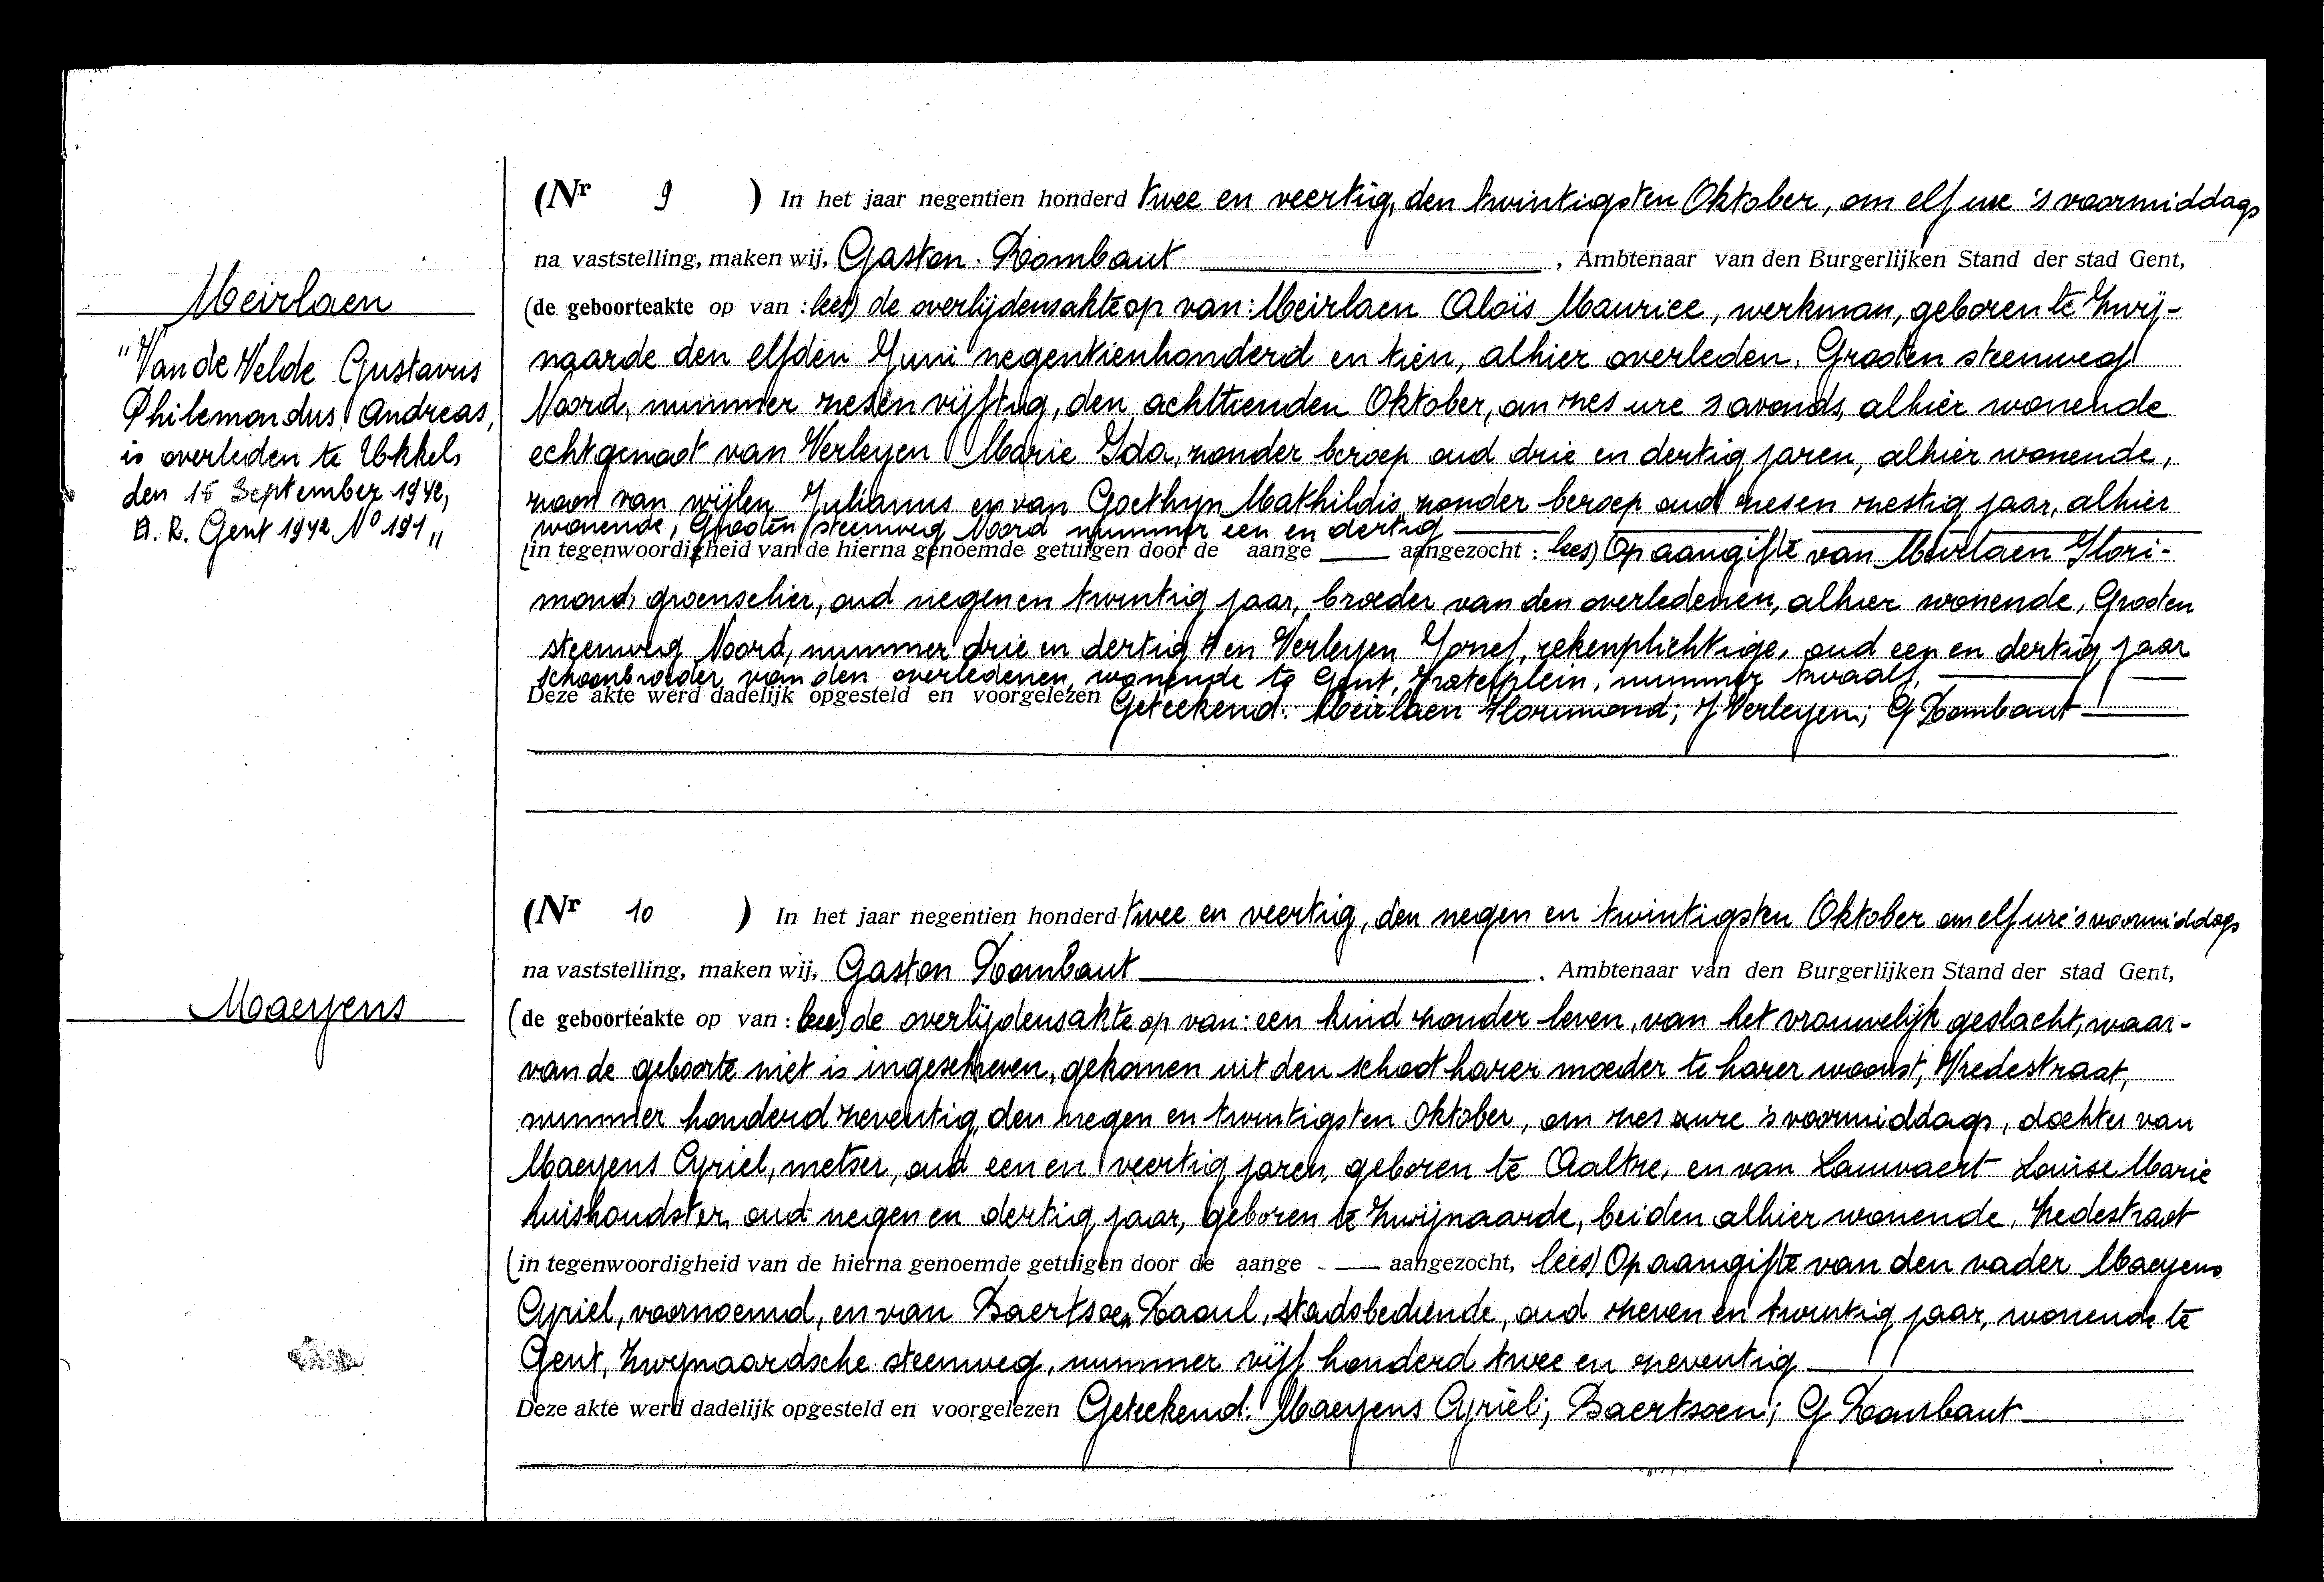 (Nr 9 ) In het jaar negentien honderd twee en veertig, den twintigsten Oktober, om elf ure 's voormiddags
na vaststelling, maken wij, Gaston Rombaut, Ambtenaar van den Burgerlijken Stand der stad Gent,
(de geboorteakte op van : lees) de overlijdensakte op van: Meirlaen Aloïs Maurice, werkman, geboren te Zwij-
naarde den elfden Juni negentienhonderd en tien, alhier overleden, Grooten steenweg
Noord, nummer zes en vijftig, den achttienden Oktober, om zes ure 's avonds, alhier wonende
echtgenoot van Verleyen Marie Ida, zonder beroep oud drie en dertig jaren, alhier wonende,
zoon van wijlen Julianus en van Goethyn Mathildis, zonder beroep oud zes en zestig jaar, alhier
wonende, Grooten steenweg Noord nummer een en dertig
(in tegenwoordigheid van de hierna genoemde getuigen door de aange ___ aangezocht : lees) Op aangifte van Meirlaen Flori-
mond, groenselier, oud negen en twintig jaar, broeder van den overledenen, alhier wonende, Grooten
steenweg Noord, nummer drie en dertig en Verleyen Jozef, rekenplichtige, oud een en dertig jaar
schoonbroeder van den overledenen, wonende te Gent, nummer twaalf,
Deze akte werd dadelijk opgesteld en voorgelezen Geteekend: Meirlaen Florimond; J Verleyen; G Rombaut
Meirlaen
"Van de Velde Gustavus
Philemondus Andreas,
is overleden te Ukkel,
den 15 September 1942,
A. R. Gent 1942 No 191"
(Nr 10 ) In het jaar negentien honderd twee en veertig, den negen en twintigsten Oktober om elf ure 's voormiddags
na vaststelling, maken wij, Gaston Rombaut, Ambtenaar van den Burgerlijken Stand der stad Gent,
(de geboorteakte op van : lees) de overlijdensakte op van: een kind zonder leven, van het vrouwelijk geslacht, waar-
van de geboorte niet is ingeschreven, gekomen uit den schoot harer moeder te harer woonst, Vredestraat,
nummer honderd zeventig, den negen en twintigsten Oktober, om zes ure 's voormiddags, dochter van
Maeyens Cyriel, metser, oud een en veertig jaren, geboren te Aaltre, en van Lauwaert Louise Marie
huishoudster, oud negen en dertig jaar, geboren te Zwijnaarde, beiden alhier wonende, Vredestraat
(in tegenwoordigheid van de hierna genoemde getuigen door de aange - ___ aangezocht, lees) Op aangifte van den vader Maeyens
Cyriel, voornoemd, en van Baertsoen Raoul, stadsbediende, oud zeven en twintig jaar, wonende te
Gent, Zwijnaardsche steenweg, nummer vijf honderd twee en zeventig
Deze akte werd dadelijk opgesteld en voorgelezen Geteekend: Maeyens Cyriel; Baertsoen; G Rombaut
Maeyens